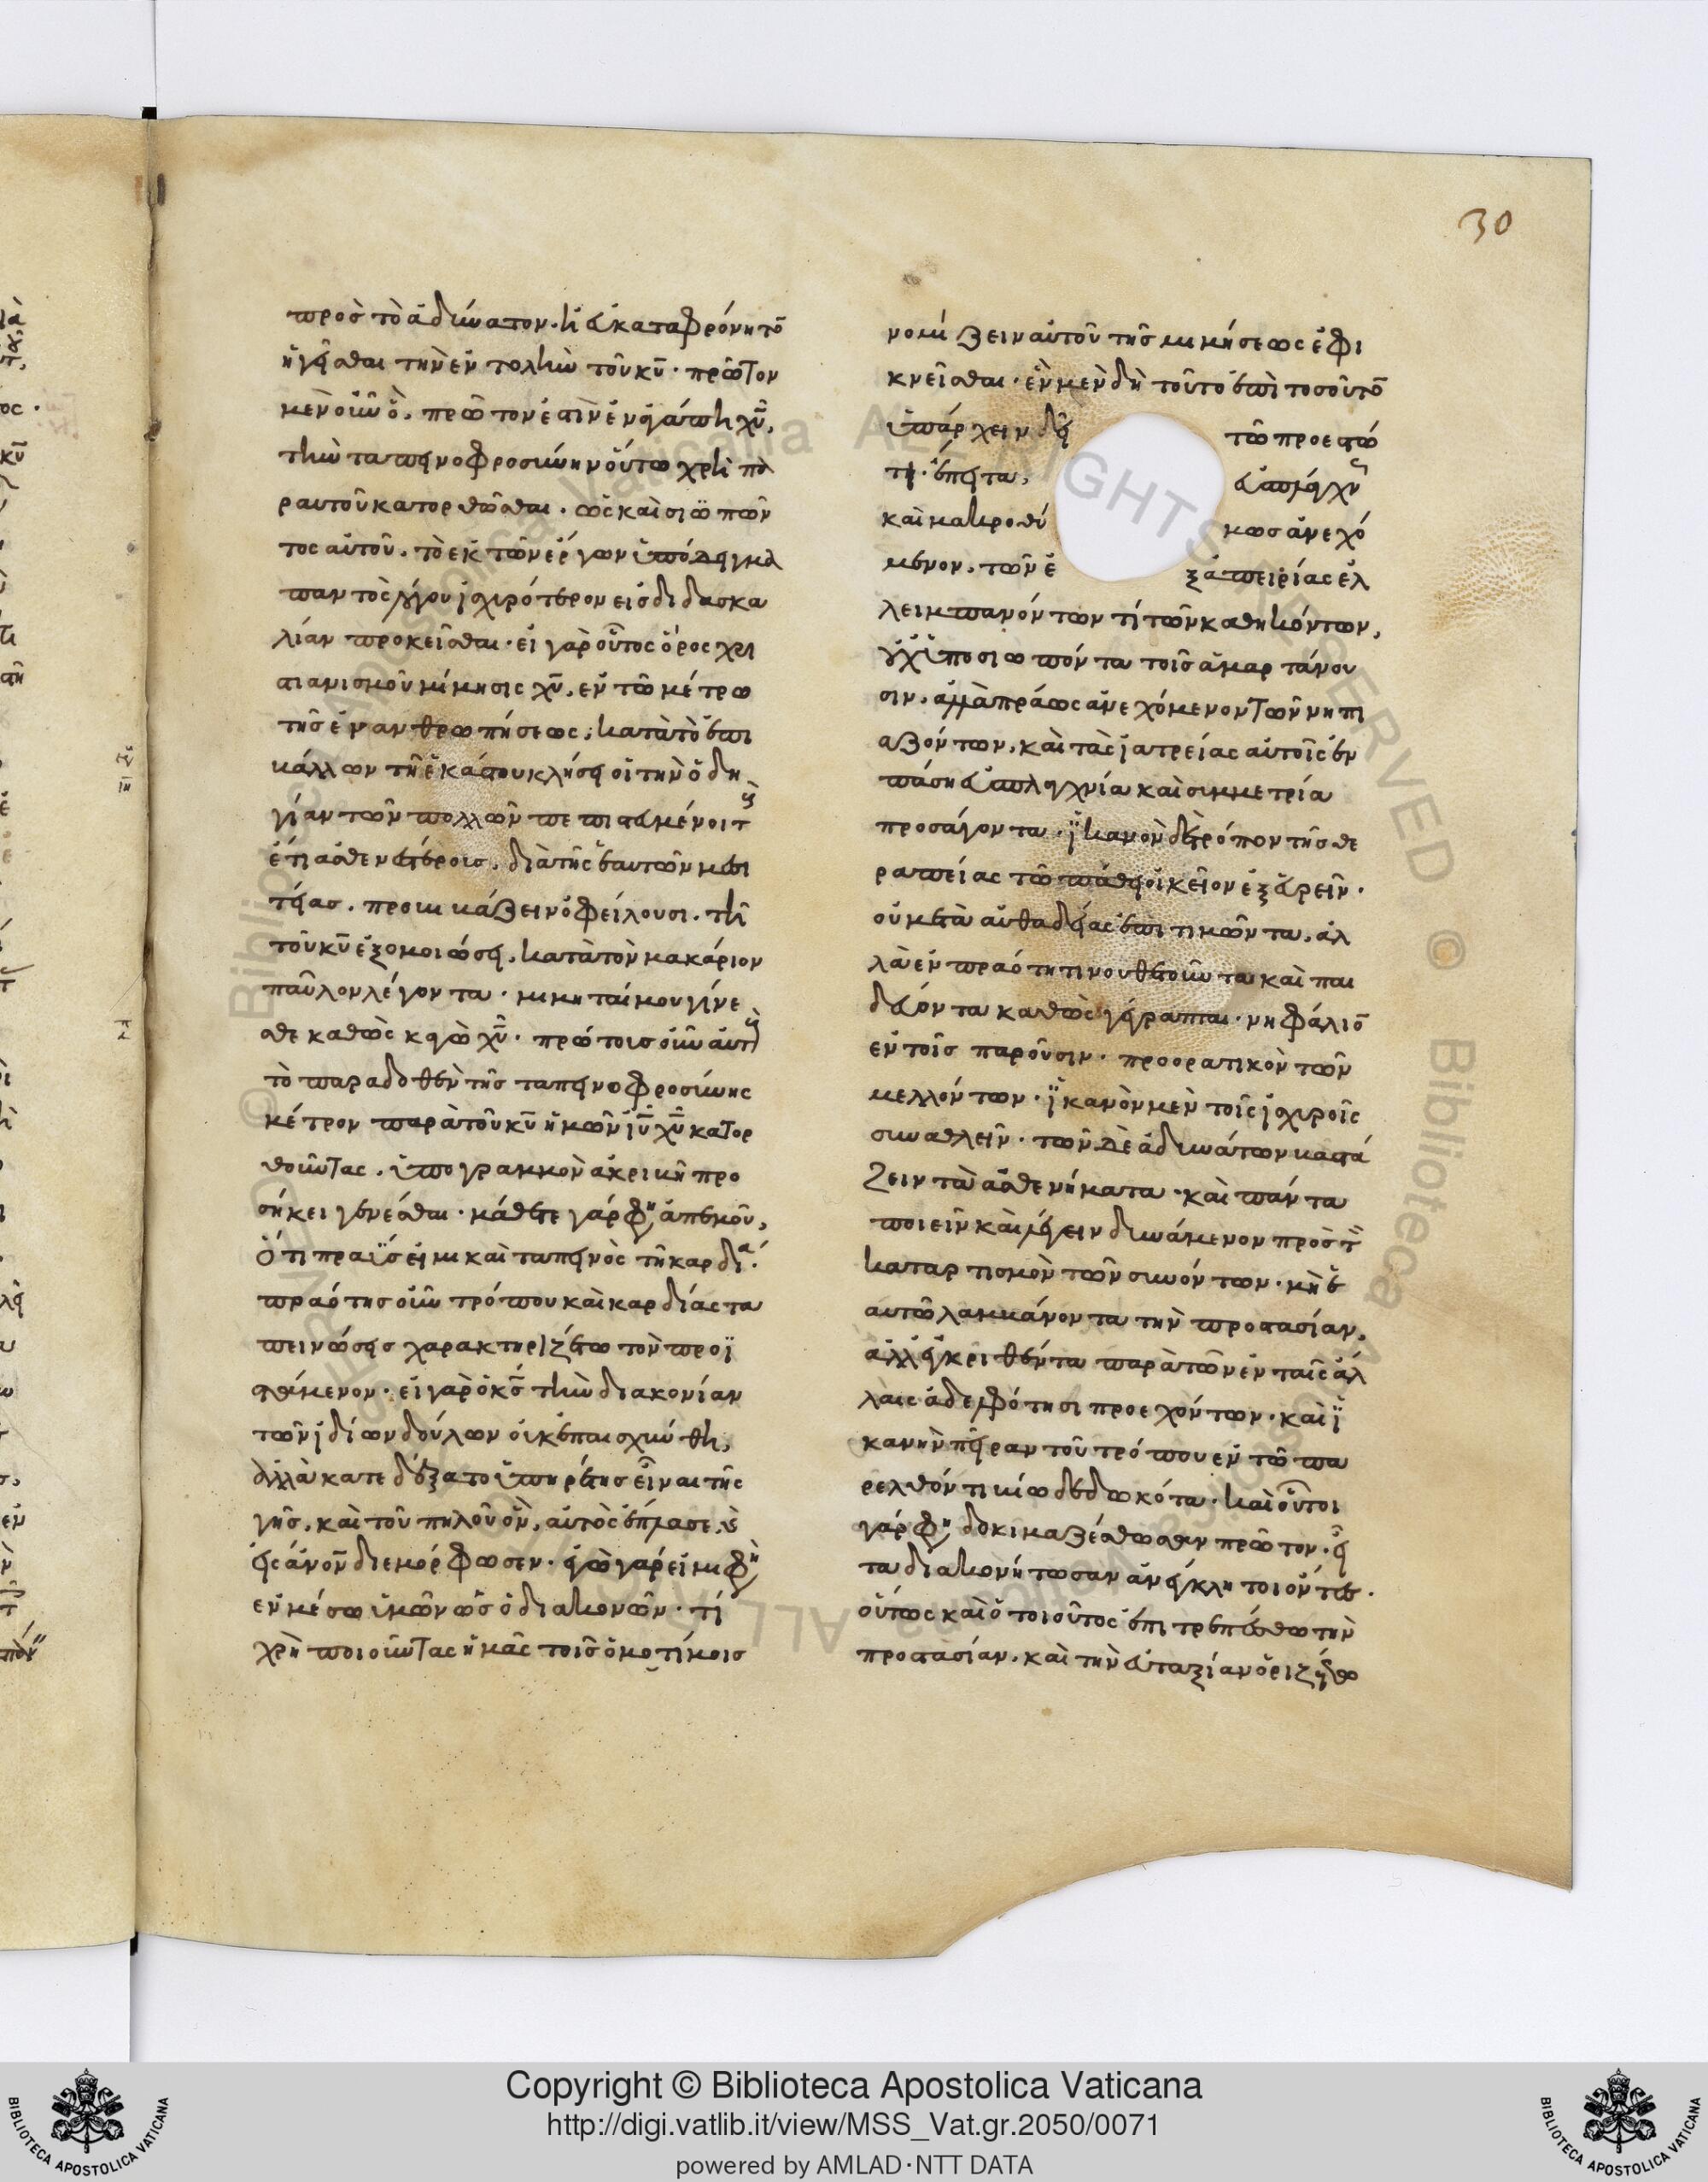 30
πρὸς τὸ ἀδύνατον. ἢ εὐκαταφρόνητον
ἡγεῖσθαι τὴν ἐντολὴν τοῦ κυ. πρῶτον
μὲν οὖν ὃ, πρῶτον ἐστὶν ἐν ἀγάπη χυ,
τὴν ταπεινοφροσύνην οὕτω χρὴ πα
ρ αυτοῦ κατορθῶσθαι. ὡς καὶ σιωπῶν
τος αὐτοῦ. τὸ ἐκ τῶν ἔργων ὑπόδειγμα
παντὸς λόγου ἰσχυρότερον εἰς διδασκα
λίαν προκεῖσθαι. εἰ γὰρ οὗτος ὅρος χρι
στιανισμοῦ μίμησις χυ, ἐν τῶ μέτρω
τῆς ἐνανθρωπήσεως, κατὰ τὸ ἐπι
βάλλων τῆ ἑκάστου κλήσει οἱ τὴν ὁδη
γίαν τῶν πολλῶν πεπιστευμένοι τοὺς
ἔτι ἀσθενεστέροις. διὰ τῆς ἑαυτῶν μεσι
τείας. προσβιβάζειν ὀφείλουσι. τῆ
τοῦ κυ ἐξομοιώσει, κατὰ τὸν μακάριον
παῦλον λέγοντα. μιμηταί μου γίνε
σθε καθὼς κἀγὼ χυ. πρώτοις οὖν αὐτοὺς
τὸ παραδοθὲν τῆς ταπεινοφροσύνης
μέτρον παρὰ τοῦ κυ ἡμῶν ιυ χυ κατορ
θοῦντας. ὑπογραμμὸν ἀκριβῆ προ
σήκει γενέσθαι. μάθετε γάρ φη, ἀπ ἐμοῦ,
ὅτι πραΰς εἰμι καὶ ταπεινὸς τῆ καρδία.
πραότης οὖν τρόπου καὶ καρδίας τα
πεινώσεις χαρακτηριζέτω τὸν προϊ
στάμενον. εἰ γὰρ ὁ κς τὴν διακονίαν
τῶν ἰδίων δούλων οὐκ ἐπαισχύνθη,
ἀλλὰ κατεδέξατο ὑπηρέτης εἶναι τῆς
γῆς. καὶ τοῦ πηλοῦ ὃν, αὐτὸς ἔπλασε, καὶ
εἰς ἀνον διεμόρφωσεν. ἐγὼ γάρ εἰμι φη
ἐν μέσω ὑμῶν ὡς ὁ διακονῶν. τί
χρὴ ποιοῦντας ἡμᾶς τοῖς ὁμοτίμοις
νομίζειν αὐτοῦ τῆς μιμήσεως ἐφι
κνεῖσθαι. ἓν μὲν δὴ τοῦτο ἐπὶ τοσοῦτον
ὑπάρχειν δεῖ τῶ προεστώ
τι. ἔπειτα, εὔσπλαγχνον
καὶ μακροθύμως ἀνεχό
μενον. τῶν ἐξ ἀπειρίας ἐλ
λειμπανόντων τί τῶν καθηκόντων,
οὐχ ὑποσιωπόντα τοῖς ἁμαρτάνου
σιν. ἀλλὰ πράως ἀνεχόμενον τῶν νηπι
αζόντων, καὶ τὰς ἰατρείας αὐτοῖς ἐν
πάση εὐσπλαγχνία καὶ συμμετρία
προσάγοντα. ἱκανὸν δὲ τρόπον τῆς θε
ραπείας τῶ πάθει οἰκεῖον ἐξευρεῖν.
οὐ μετὰ αὐθαδείας ἐπιτιμῶντα, ἀλ
λὰ ἐν πραότητι νουθετοῦντα καὶ παι
δεύοντα καθὼς γέγραπται. νηφάλιον
ἐν τοῖς παροῦσιν. προορατικὸν τῶν
μελλόντων. ἱκανὸν μὲν τοῖς ἰσχυροῖς
συναθλεῖν. τῶν δὲ ἀδυνάτων βαστά
ζειν τὰ ἀσθενήματα. καὶ πάντα
ποιεῖν καὶ λέγειν δυνάμενον πρὸς τὸν
καταρτισμὸν τῶν συνόντων. μὴ ἐ
αυτῶ λαμβάνοντα τὴν προστασίαν,
ἀλλ ἐγκριθέντα παρὰ τῶν ἐν ταῖς ἀλ
λαις ἀδελφότησι προεχόντων. καὶ ἱ
κανὴν πεῖραν τοῦ τρόπου ἐν τῶ πα
ρελθόντι βίω δεδωκότα. καὶ οὗτοι
γάρ φη, δοκιμαζέσθωσαν πρῶτον. εἶ
τα διακονήτωσαν ἀνέγκλητοι ὄντες.
οὕτως καὶ ὁ τοιοῦτος ἐπιτρεπέσθω τὴν
προστασίαν. καὶ τὴν εὐταξίαν ὁριζέσθω
Copyright © Biblioteca Apostolica Vaticana
http://digi.vatlib.it/view/MSS_Vat.gr.2050/0071
powered by AMLAD·NTT DATA